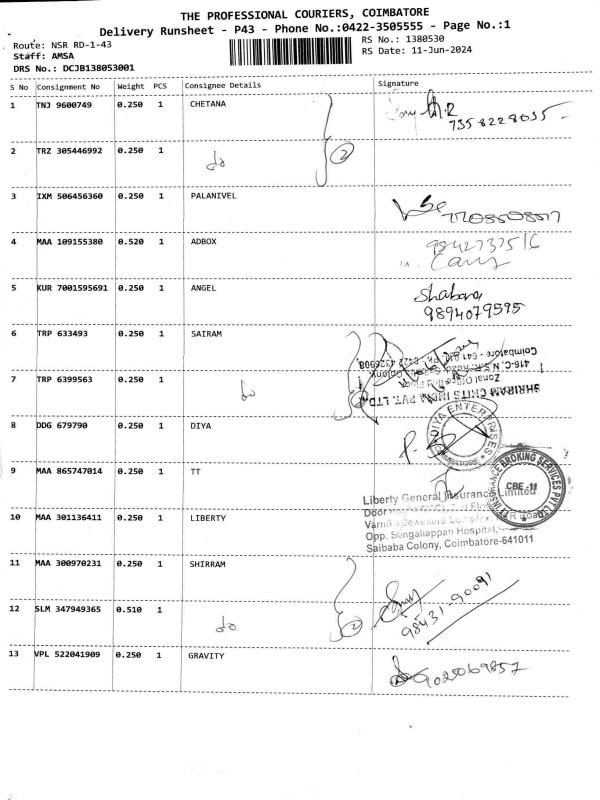 THE PROFESSIONAL COURIERS, COIMBATORE
Delivery Runsheet - P43 - Phone No.:0422-3505555 - Page No.:1
Route: NSR RD-1-43
RS No.: 1380530
Staff: AMSA
RS Date: 11-Jun-2024
DRS No.: DCJB138053001
S No Consignment No Weight PCS Consignee Details Signature
1 TNJ 9600749 0.250 1 CHETANA
7358228035
2 TRZ 305446992 0.250 1 do 2
3 IXM 506456360 0.250 1 PALANIVEL
4 MAA 109155380 0.520 1 ADBOX
9842737516
5 KUR 7001595691 0.250 1 ANGEL
9894079595
6 TRP 633493 0.250 1 SAIRAM
7 TRP 6399563 0.250 1 do 2
SHRIRAM CHITS INDIA PVT. LTD.
8 DDG 679790 0.250 1 DIYA
DIYA ENTERPRISES
9 MAA 865747014 0.250 1 TT
INSURANCE BROKING SERVICES PVT LTD
CBE-11
Liberty General Insurance Limited
10 MAA 301136411 0.250 1 LIBERTY
Opp. Sengaliappan Hospital,
Saibaba Colony, Coimbatore-641011
11 MAA 300970231 0.250 1 SHIRRAM
12 SLM 347949365 0.510 1 do 2
98431-90091
13 VPL 522041909 0.250 1 GRAVITY
9025069857